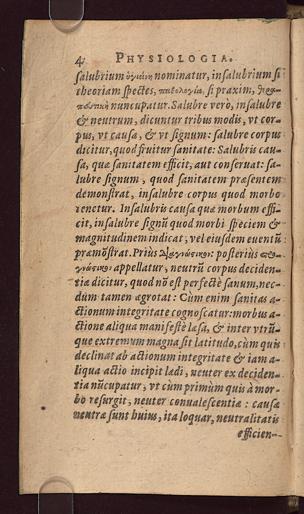 4 PHYSIOLOGIA.
salubrium ὑγιεινὴ nominatur, insalubrium si
theoriam spectes, παθολογία, si praxim, θερα-
πευτικὴ nuncupatur. Salubre verò, insalubre
& neutrum, dicuntur tribus modis, vt cor-
pus, vt causa, & vt signum: salubre corpus
dicitur, quod fruitur sanitate: Salubris cau-
sa, quæ sanitatem efficit, aut conseruat: sa-
lubre signum, quod sanitatem præsentem
demonstrat, insalubre corpus quod morbo
tenetur. Insalubris causa quæ morbum effi-
cit, insalubre signũ quod morbi speciem &
magnitudinem indicat, vel eiusdem euentũ
præmõstrat. Prius διαγνωστικὸν: posterius προ-
γνωστικὸν appellatur, neutrũ corpus deciden-
tia dicitur, quod nõ est perfectè sanum, nec-
dùm tamen ægrotat: Cùm enim sanitas a-
ctionum integritate cognoscatur: morbus a-
ctione aliqua manifestè læsa, & inter vtrũ-
que extremum magna sit latitudo, cùm quis
declinat ab actionum integritate & iam a-
liqua actio incipit lædi, neuter ex deciden-
tia nũcupatur, vt cùm primùm quis à mor-
bo resurgit, neuter conualescentiæ: causæ
neutræ sunt huius, ita loquar, neutralitatis
efficien-